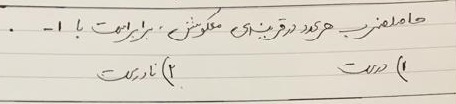 حاصلضرب هر عدد در قرینه‌ی معکوسش، برابر است با ۱- .
۱) درست ۲) نادرست